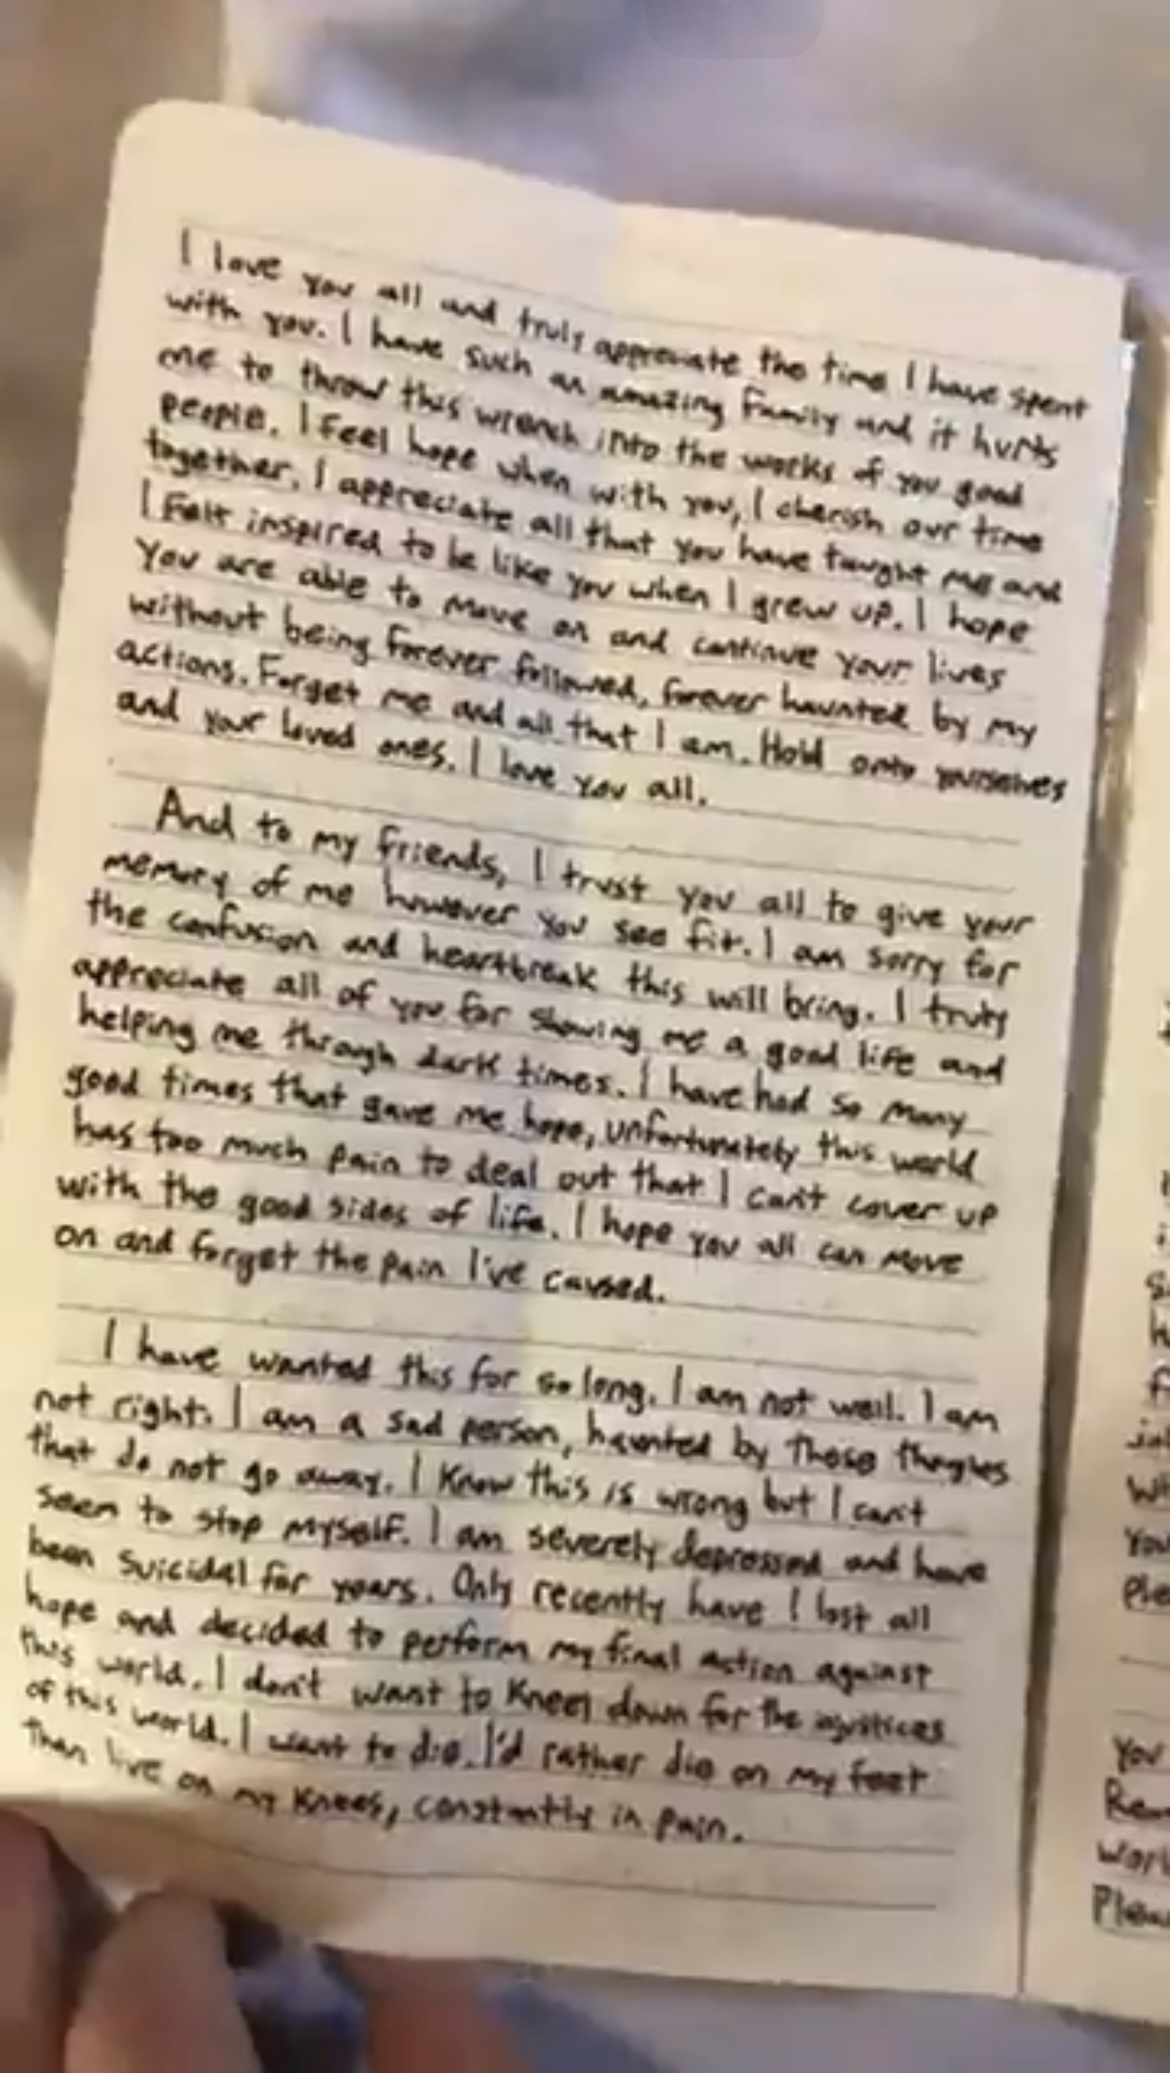 I love you all and truly appreciate the time I have spent
with you. I have such an amazing family and it hurts
me to throw this wrench into the works of you good
people. I feel hope when with you, I cherish our time
together. I appreciate all that you have taught me and
I felt inspired to be like you when I grew up. I hope
You are able to move on and continue your lives
without being forever followed, forever haunted by my
actions. Forget me and all that I am. Hold onto yourselves
and your loved ones. I love you all.
And to my friends, I trust you all to give your
memory of me however you see fit. I am sorry for
the confusion and heartbreak this will bring. I truly
appreciate all of you for showing me a good life and
helping me through dark times. I have had so many
good times that gave me hope, unfortunately this world
has too much pain to deal out that I can't cover up
with the good sides of life. I hope you all can move
on and forget the pain I've caused.
I have wanted this for so long. I am not well. I am
not right. I am a sad person, haunted by these
that do not go away. I know this is wrong but I can't
seem to stop myself. I am severely depressed and have
been suicidal for years. Only recently have I lost all
hope and decided to perform my final action against
this world. I don't want to kneel down for the
of this world. I want to die. I'd rather die on my feet
than live on my knees, constantly in pain.